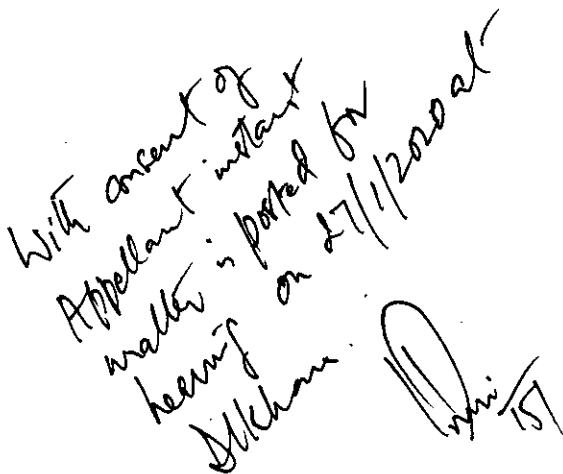 With consent of
Appellant instant
matter is posted for
hearing on 27/1/2020 at
Dilkhan.
15/